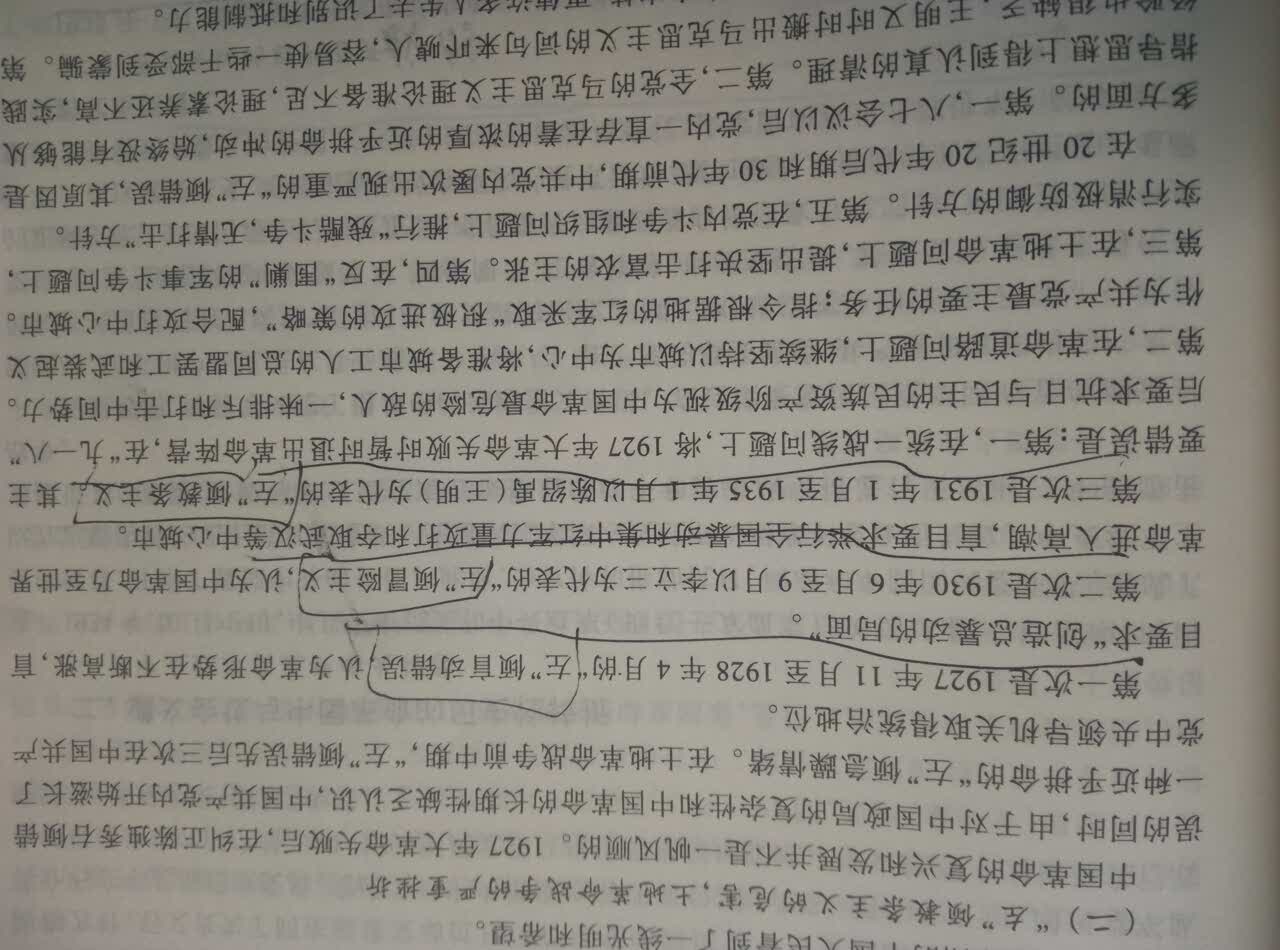 中国人民看到了一线光明和希望。
（二）“左”倾教条主义的危害，土地革命战争的严重挫折
中国革命的复兴和发展并不是一帆风顺的。1927年大革命失败后，在纠正陈独秀右倾错
误的同时，由于对中国政局的复杂性和中国革命的长期性缺乏认识，中国共产党内开始滋长了
一种近乎拼命的“左”倾急躁情绪。在土地革命战争前中期，“左”倾错误先后三次在中国共产
党中央领导机关取得统治地位。
第一次是1927年11月至1928年4月的“左”倾盲动错误，认为革命形势在不断高涨，盲
目要求“创造总暴动的局面”。
第二次是1930年6月至9月以李立三为代表的“左”倾冒险主义，认为中国革命乃至世界
革命进入高潮，盲目要求举行全国暴动和集中红军力量攻打和夺取武汉等中心城市。
第三次是1931年1月至1935年1月以陈绍禹（王明）为代表的“左”倾教条主义。其主
要错误是：第一，在统一战线问题上，将1927年大革命失败时暂时退出革命阵营，在“九一八”
后要求抗日与民主的民族资产阶级视为中国革命最危险的敌人，一味排斥和打击中间势力。
第二，在革命道路问题上，继续坚持以城市为中心，将准备城市工人的总同盟罢工和武装起义
作为共产党最主要的任务；指令根据地的红军采取“积极进攻的策略”，配合攻打中心城市。
第三，在土地革命问题上，提出坚决打击富农的主张。第四，在反“围剿”的军事斗争问题上，
实行消极防御的方针。第五，在党内斗争和组织问题上，推行“残酷斗争，无情打击”方针。
在20世纪20年代后期和30年代前期，中共党内屡次出现严重的“左”倾错误，其原因是
多方面的。第一，八七会议以后，党内一直存在着的浓厚的近乎拼命的冲动，始终没有能够从
指导思想上得到认真的清理。第二，全党的马克思主义理论准备不足，理论素养还不高，实践
经验也很缺乏，王明又时时搬出马克思主义的词句来吓唬人，容易使一些干部受到蒙骗。第
许多人失去了识别和抵制能力。